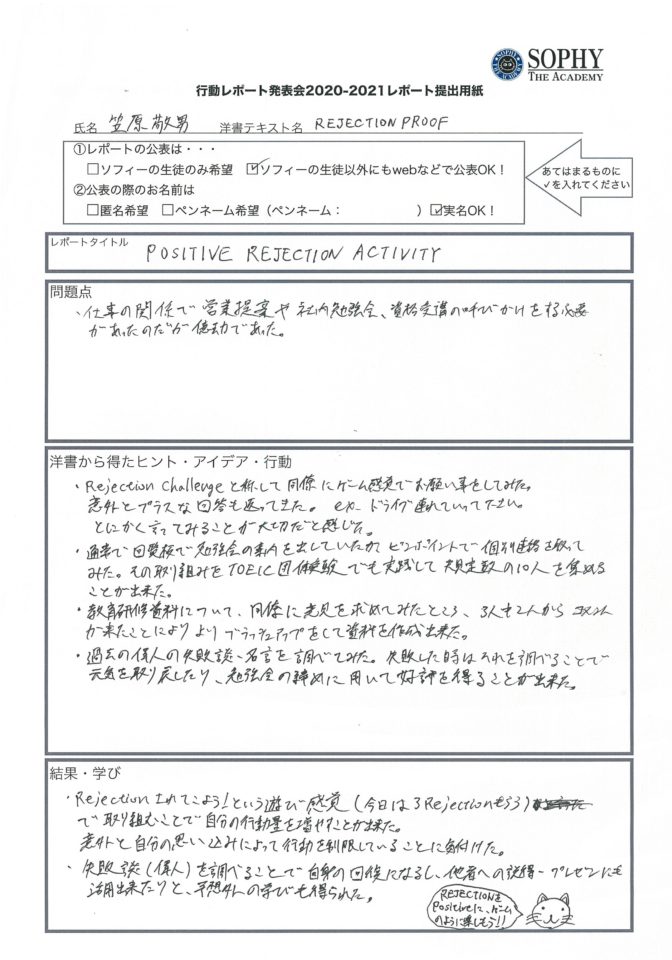 SOPHY
THE ACADEMY
行動レポート発表会2020-2021レポート提出用紙
氏名 笠原敬男 洋書テキスト名 REJECTION PROOF
①レポートの公表は・・・
□ソフィーの生徒のみ希望 ☑ソフィーの生徒以外にもwebなどで公表OK！
②公表の際のお名前は
□匿名希望 □ペンネーム希望（ペンネーム： ）☑実名OK！
あてはまるものに
✓を入れてください
レポートタイトル
POSITIVE REJECTION ACTIVITY
問題点
・仕事の関係で営業提案や社内勉強会、資格受講の呼びかけをする必要
があったのだが億劫であった。
洋書から得たヒント・アイデア・行動
・Rejection Challengeと称して同僚にゲーム感覚でお願い事をしてみた。
意外とプラスな回答も返ってきた。 ex. ドライブ連れていって下さい
とにかく言ってみることが大切だと感じた。
・通常で回覧板で勉強会の案内を出していたがピンポイントで個別連絡を取って
みた。その取り組みをTOEIC団体受験でも実践して規定数の10人を集める
ことが出来た。
・教育研修資料について、同僚に意見を求めてみたところ、3人中2人からコメント
が来たことによりよりブラッシュアップをして資料を作成出来た。
・過去の偉人の失敗談・名言を調べてみた。失敗した時はそれを調べることで
元気を取り戻したり、勉強会の締めに用いて好評を得ることが出来た。
結果・学び
・Rejectionされてこよう！という遊び感覚（今日は3Rejectionもらう）
で取り組むことで自分の行動量を増やすことが出来た。
意外と自分の思い込みによって行動を制限していることに気付けた。
・失敗談（偉人）を調べることで自身の回復になるし、他者への説得・プレゼンにも
活用出来たりと、予想外の学びも得られた。
REJECTIONを
Positiveに、ゲーム
のように楽しもう!!